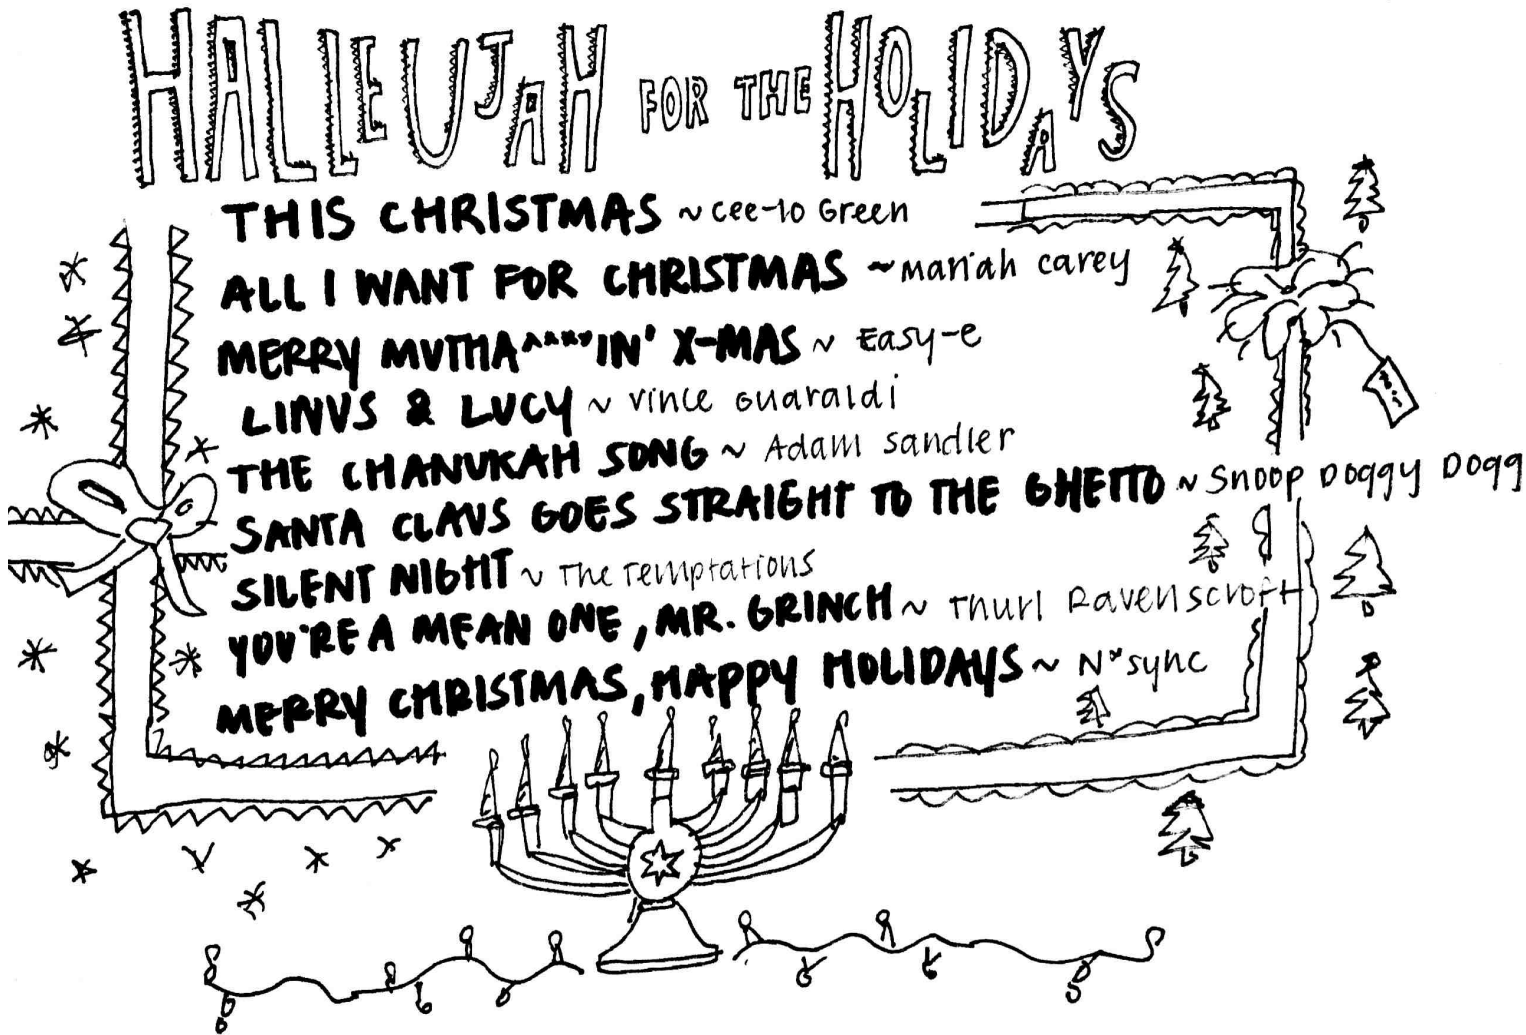 HALLEUJAH FOR THE HOLIDAYS
THIS CHRISTMAS ~ cee-lo Green
ALL I WANT FOR CHRISTMAS ~ mariah carey
MERRY MUTHA****IN' X-MAS ~ Easy-e
LINUS & LUCY ~ vince Guaraldi
THE CHANUKAH SONG ~ Adam sandler
SANTA CLAUS GOES STRAIGHT TO THE GHETTO ~ Snoop Doggy Dogg
SILENT NIGHT ~ The Temptations
YOU'RE A MEAN ONE, MR. GRINCH ~ Thurl Ravenscroft
MERRY CHRISTMAS, HAPPY HOLIDAYS ~ N*sync